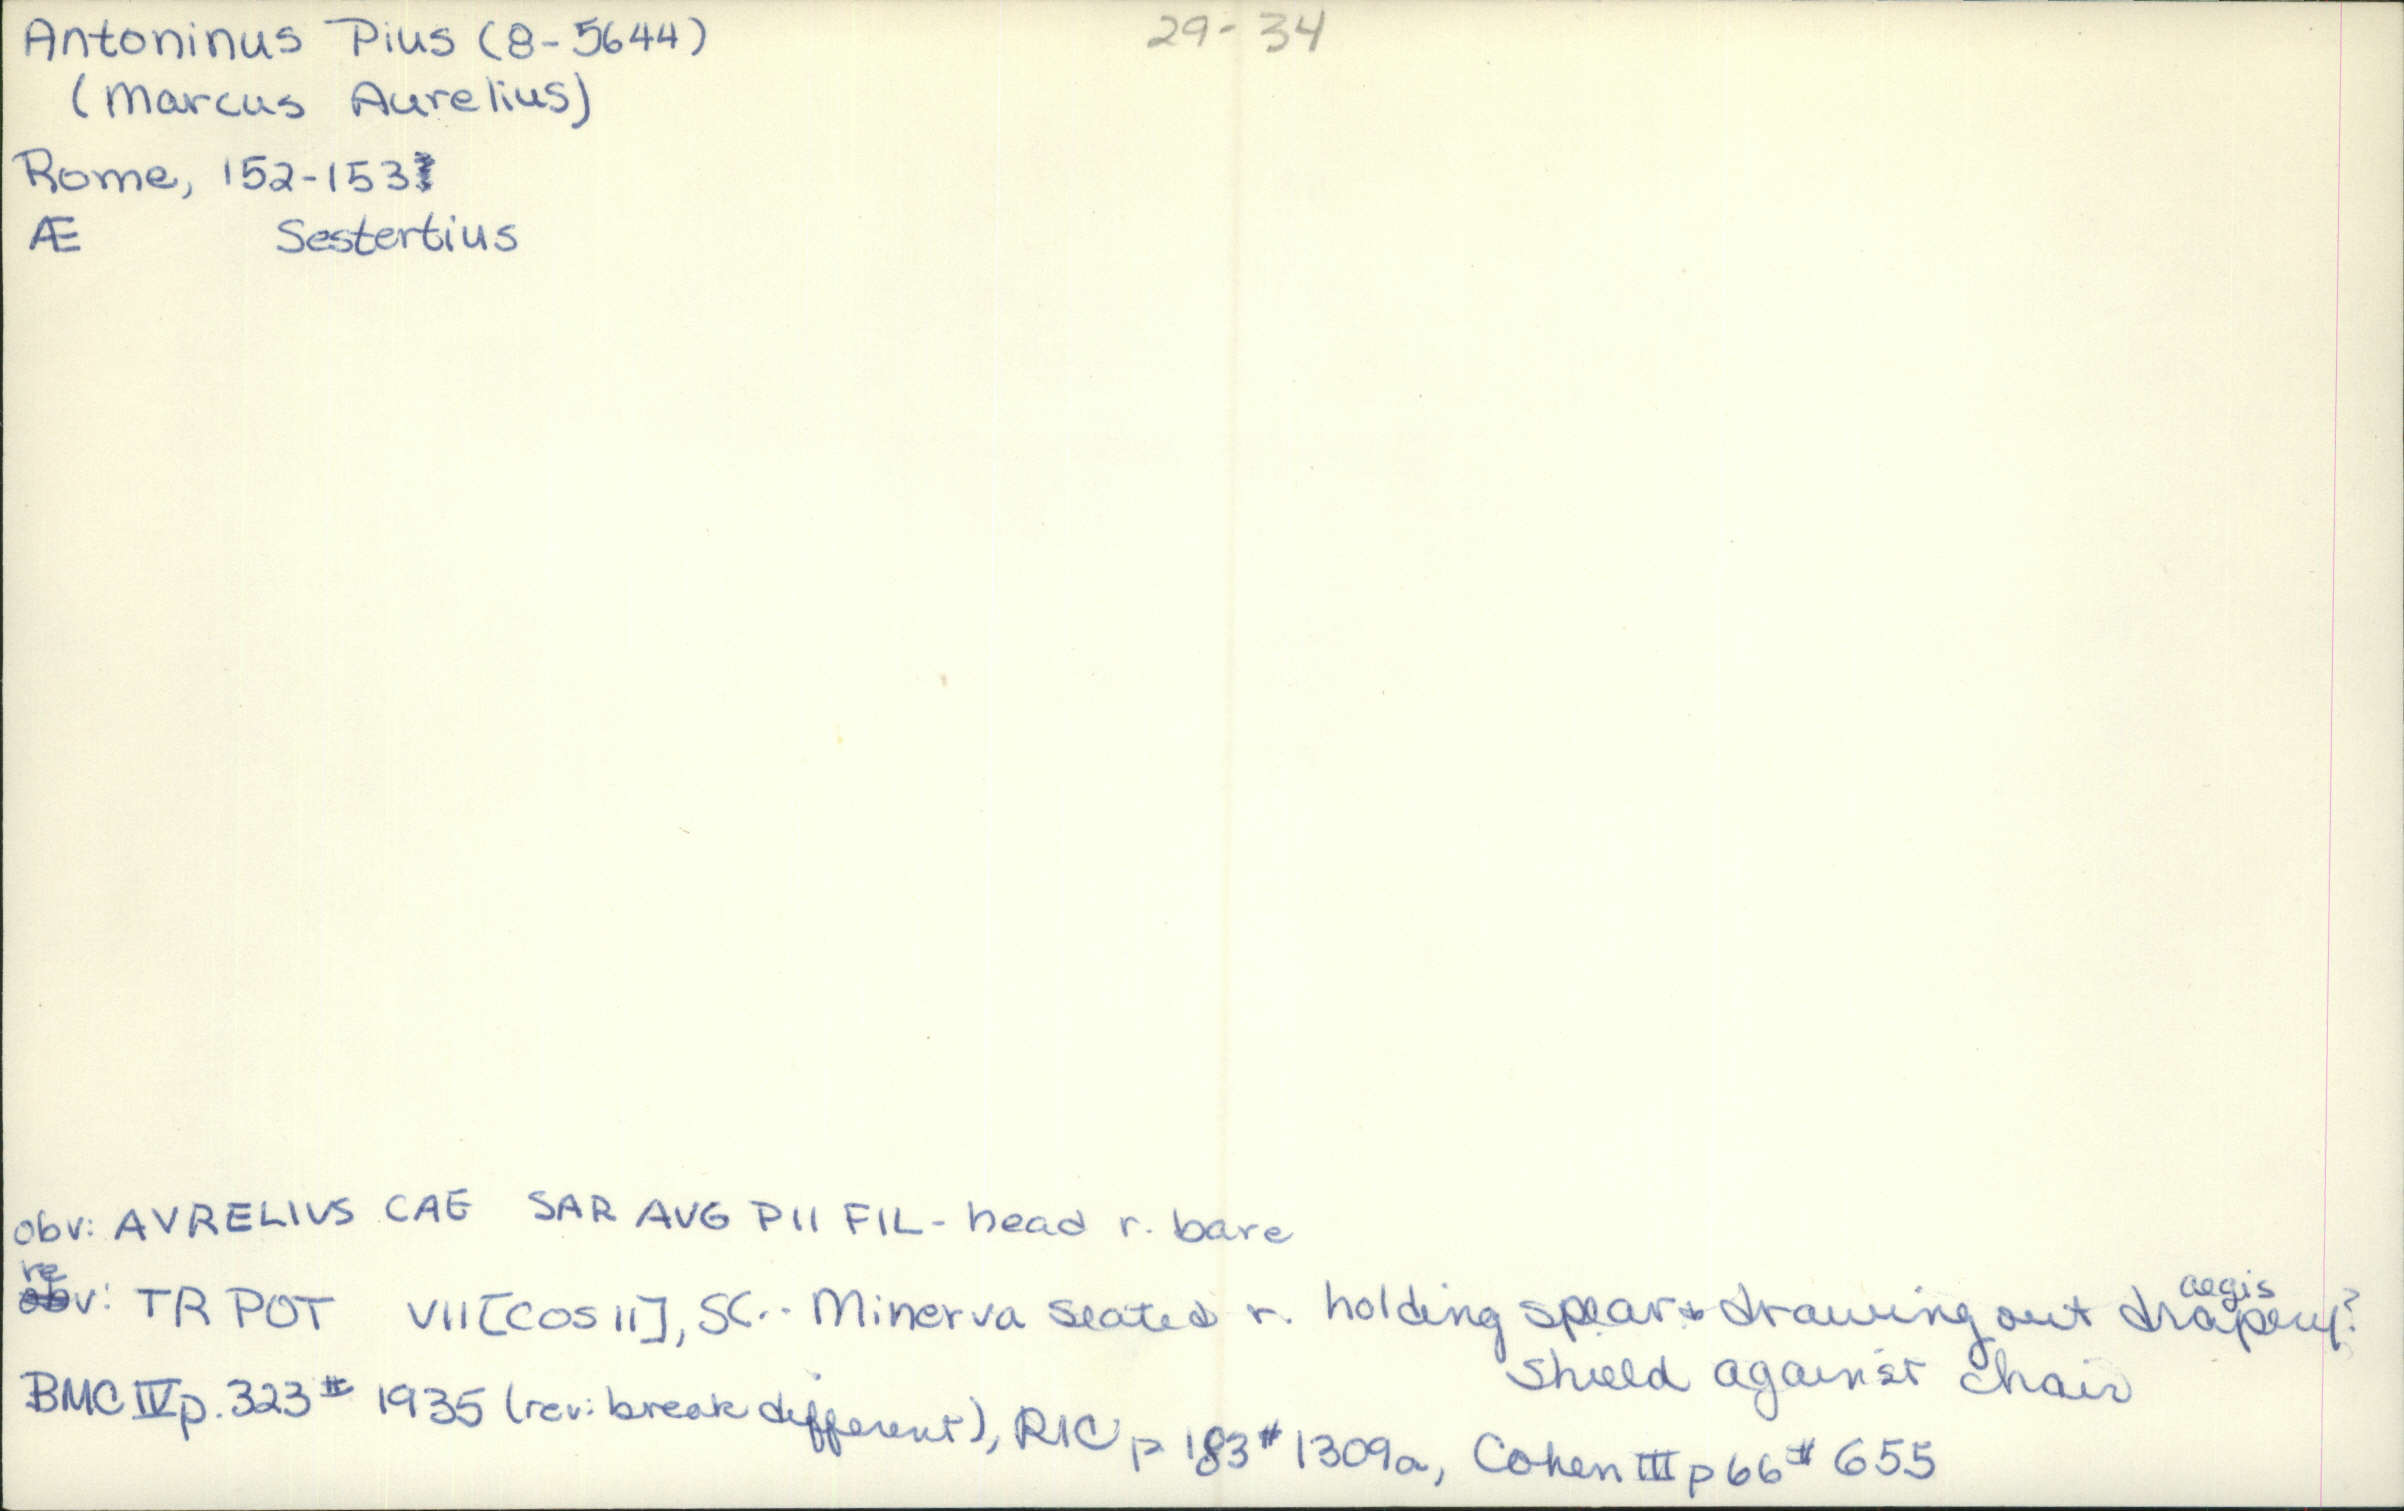 Antoninus Pius (8-5644)
29-34
(Marcus Aurelius)
Rome, 152-153
Æ Sestertius
obv: AVRELIVS CAE SAR AVG PII FIL - head r. bare
rev: TR POT VII [COS II], SC -- Minerva seated r. holding spear & drawing out drapery? aegis
shield against chair
BMC IV p. 323 # 1935 (rev: break different), RIC p 183 # 1309a, Cohen III p 66 # 655